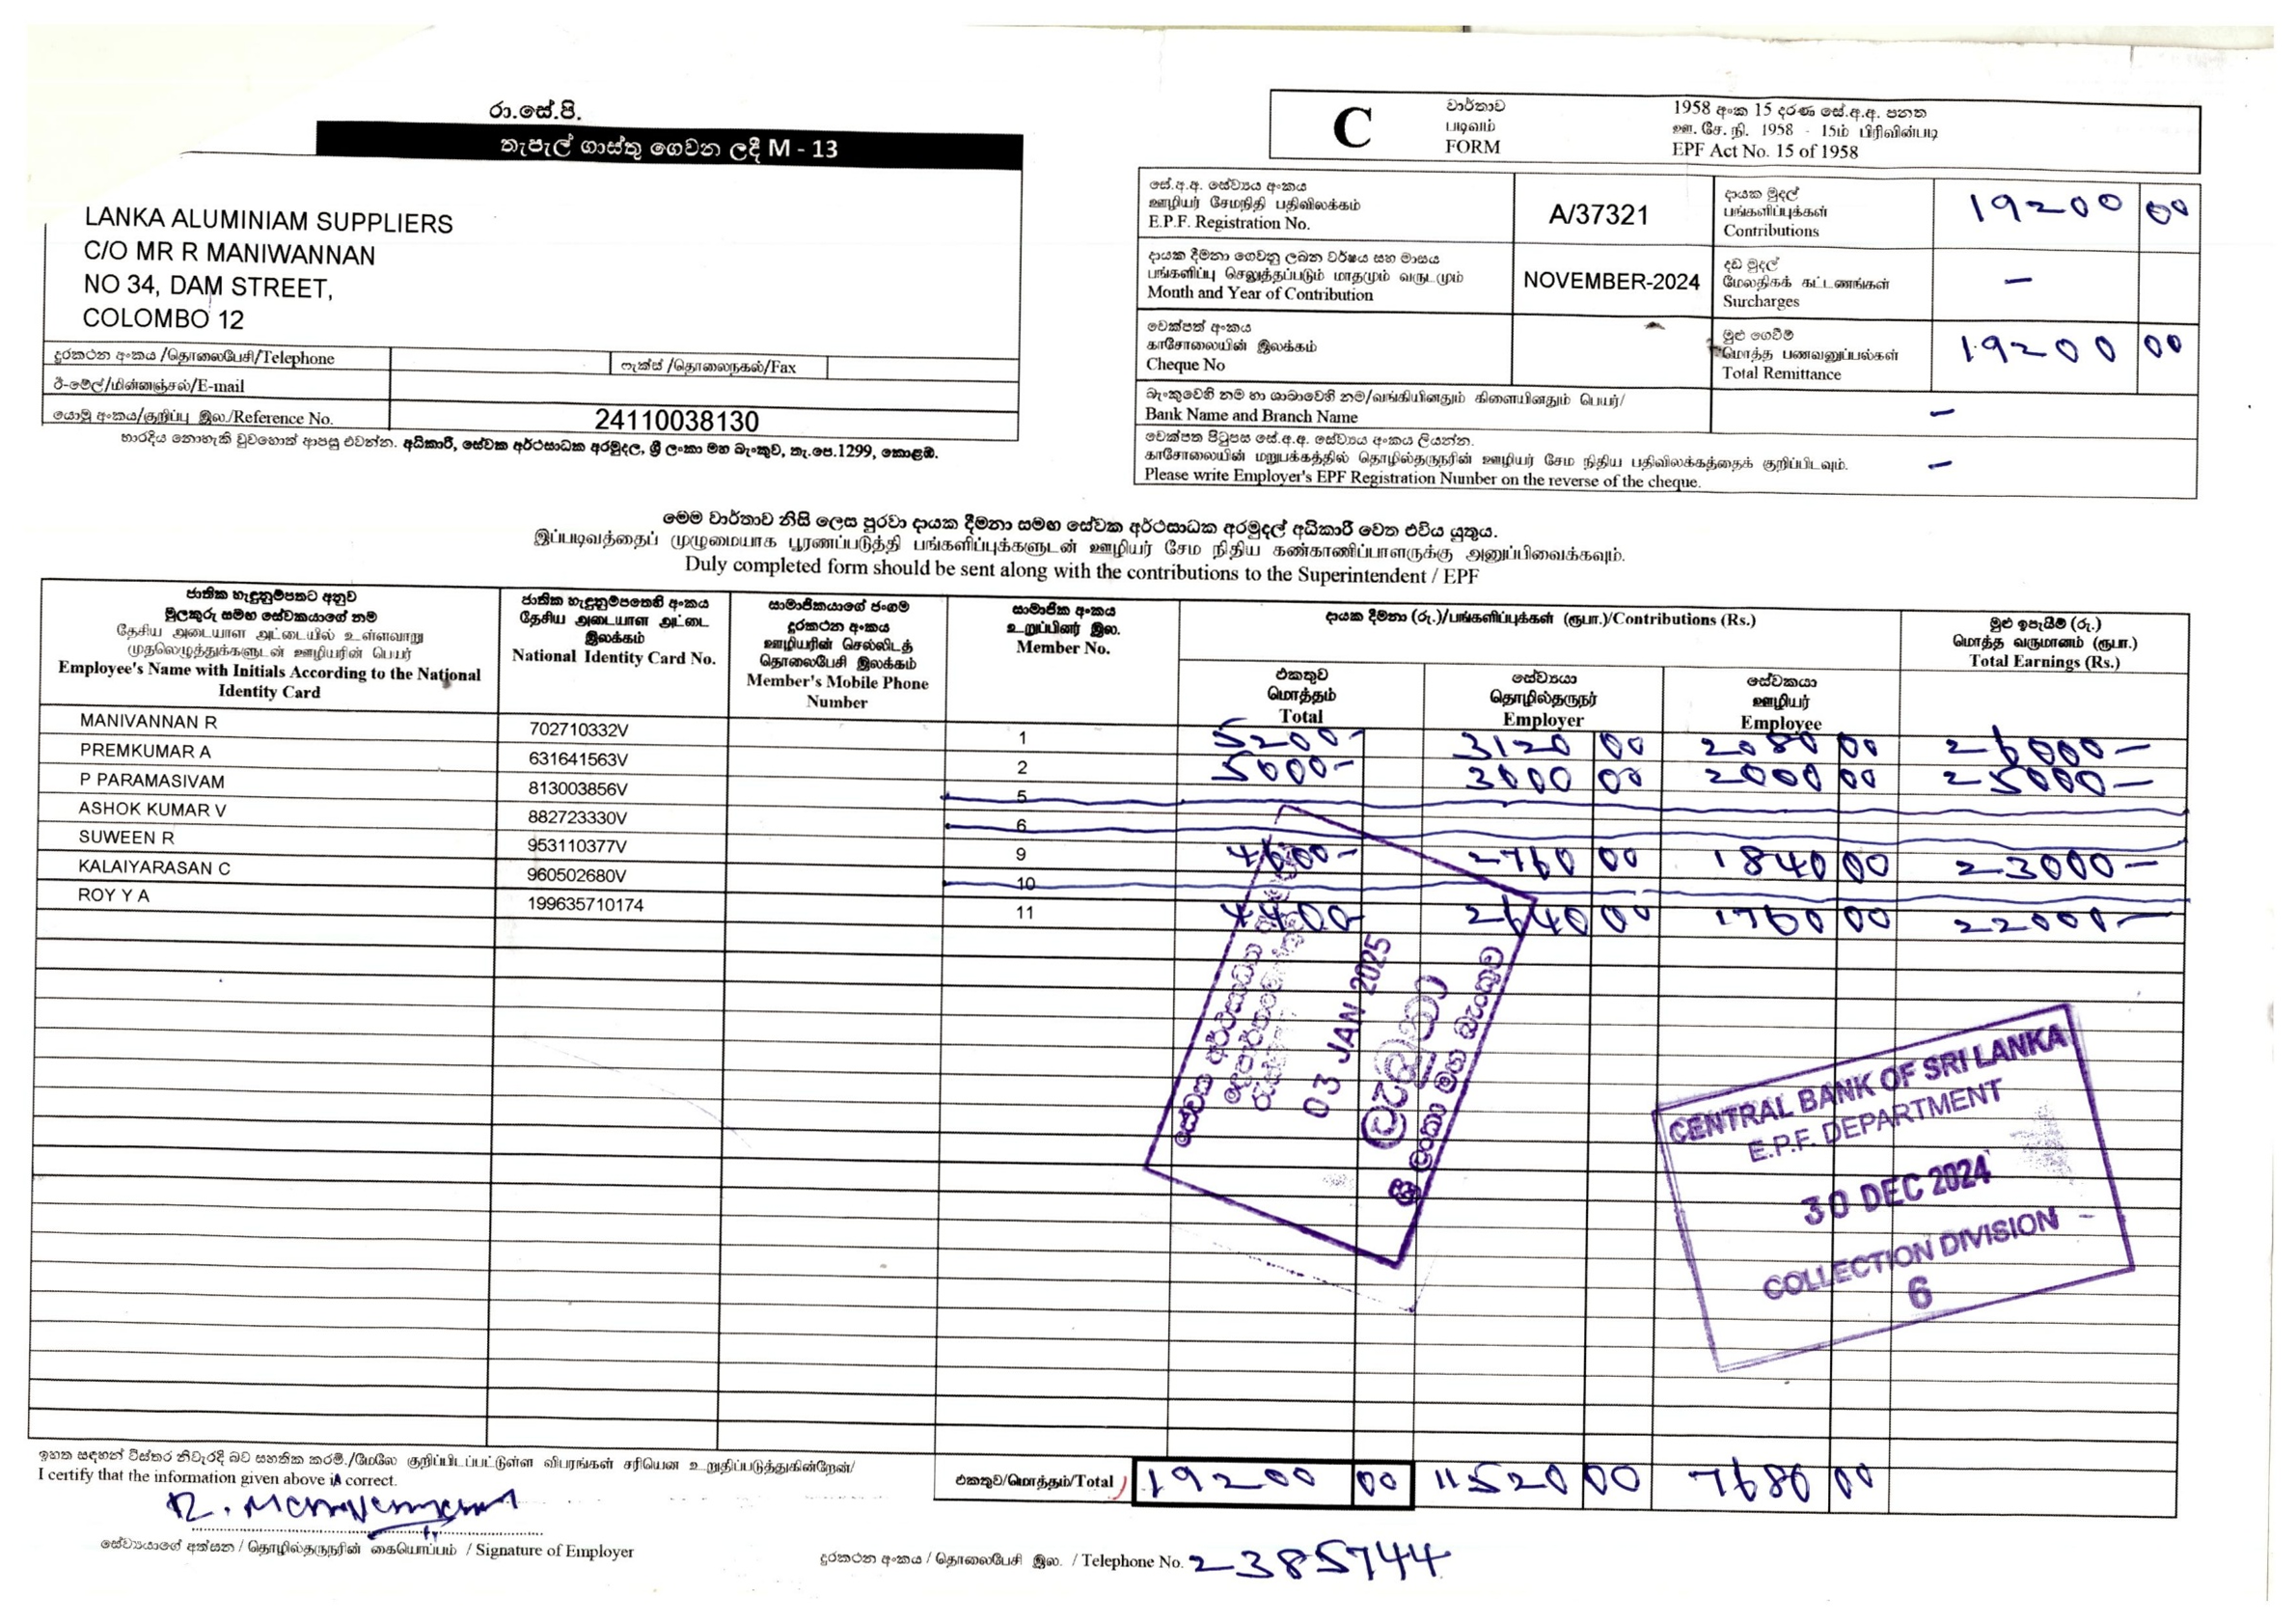 රා.සේ.පි.
තැපැල් ගාස්තු ගෙවන ලදී M - 13
LANKA ALUMINIAM SUPPLIERS
C/O MR R MANIWANNAN
NO 34, DAM STREET,
COLOMBO 12
දුරකථන අංකය /தொலைபேசி/Telephone
ෆැක්ස් /தொலைநகல்/Fax
ඊ-මේල්/மின்னஞ்சல்/E-mail
යොමු අංකය/குறிப்பு இல/Reference No. 24110038130
භාරදිය නොහැකි වුවහොත් ආපසු එවන්න. අධිකාරී, සේවක අර්ථසාධක අරමුදල, ශ්‍රී ලංකා මහ බැංකුව, තැ.පෙ.1299, කොළඹ.
C
වාර්තාව
படிவம்
FORM
1958 අංක 15 දරණ සේ.අ.අ. පනත
ஊ. சே. நி. 1958 - 15ம் பிரிவின்படி
EPF Act No. 15 of 1958
සේ.අ.අ. සේව්‍යය අංකය
ஊழியர் சேமநிதி பதிவிலக்கம்
E.P.F. Registration No.
A/37321
දායක මුදල්
பங்களிப்புக்கள்
Contributions
19200 00
දායක දීමනා ගෙවනු ලබන වර්ෂය සහ මාසය
பங்களிப்பு செலுத்தப்படும் மாதமும் வருடமும்
Month and Year of Contribution
NOVEMBER-2024
දඩ මුදල්
மேலதிகக் கட்டணங்கள்
Surcharges
–
චෙක්පත් අංකය
காசோலையின் இலக்கம்
Cheque No
මුළු ගෙවීම්
மொத்த பணவனுப்பல்கள்
Total Remittance
19200 00
බැංකුවෙහි නම හා ශාඛාවෙහි නම/வங்கியினதும் கிளையினதும் பெயர்/
Bank Name and Branch Name
–
චෙක්පත පිටුපස සේ.අ.අ. සේව්‍යය අංකය ලියන්න.
காசோலையின் மறுபக்கத்தில் தொழில்தருநரின் ஊழியர் சேம நிதிய பதிவிலக்கத்தைக் குறிப்பிடவும்.
Please write Employer's EPF Registration Number on the reverse of the cheque.
–
මෙම වාර්තාව නිසි ලෙස පුරවා දායක දීමනා සමඟ සේවක අර්ථසාධක අරමුදල් අධිකාරී වෙත එවිය යුතුය.
இப்படிவத்தைப் முழுமையாக பூரணப்படுத்தி பங்களிப்புக்களுடன் ஊழியர் சேம நிதிய கண்காணிப்பாளருக்கு அனுப்பிவைக்கவும்.
Duly completed form should be sent along with the contributions to the Superintendent / EPF
ජාතික හැඳුනුම්පතට අනුව
මුලකුරු සමඟ සේවකයාගේ නම
தேசிய அடையாள அட்டையில் உள்ளவாறு
முதலெழுத்துக்களுடன் ஊழியரின் பெயர்
Employee's Name with Initials According to the National
Identity Card
ජාතික හැඳුනුම්පතෙහි අංකය
தேசிய அடையாள அட்டை
இலக்கம்
National Identity Card No.
සාමාජිකයාගේ ජංගම
දුරකථන අංකය
ஊழியரின் செல்லிடத்
தொலைபேசி இலக்கம்
Member's Mobile Phone
Number
සාමාජික අංකය
உறுப்பினர் இல.
Member No.
දායක දීමනා (රු.)/பங்களிப்புக்கள் (ரூபா.)/Contributions (Rs.)
මුළු ඉපැයීම් (රු.)
மொத்த வருமானம் (ரூபா.)
Total Earnings (Rs.)
එකතුව
மொத்தம்
Total
සේව්‍යයා
தொழில்தருநர்
Employer
සේවකයා
ஊழியர்
Employee
MANIVANNAN R 702710332V 1 5200- 3120 00 2080 00 26000-
PREMKUMAR A 631641563V 2 5000- 3000 00 2000 00 25000-
P PARAMASIVAM 813003856V 5
ASHOK KUMAR V 882723330V 6
SUWEEN R 953110377V 9 4600- 2760 00 1840 00 23000-
KALAIYARASAN C 960502680V 10
ROY Y A 199635710174 11 4400- 2640 00 1760 00 22000-
සේවක අර්ථසාධක
03 JAN 2025
ලැබුණා
ශ්‍රී ලංකා මහ බැංකුව
CENTRAL BANK OF SRI LANKA
E.P.F. DEPARTMENT
30 DEC 2024
COLLECTION DIVISION
6
ඉහත සඳහන් විස්තර නිවැරදි බව සහතික කරමි./மேலே குறிப்பிடப்பட்டுள்ள விபரங்கள் சரியென உறுதிப்படுத்துகின்றேன்/
I certify that the information given above is correct.
එකතුව/மொத்தம்/Total 19200 00 11520 00 7680 00
R. Manivannan
සේව්‍යයාගේ අත්සන / தொழில்தருநரின் கையொப்பம் / Signature of Employer
දුරකථන අංකය / தொலைபேசி இல. / Telephone No. 2385744